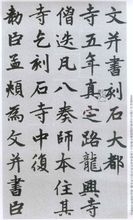 文并書刻石大都
寺五年真定路龍興寺
僧迭凡八奏師本住其
寺乞刻石寺中復
勑臣孟頫為文并書臣